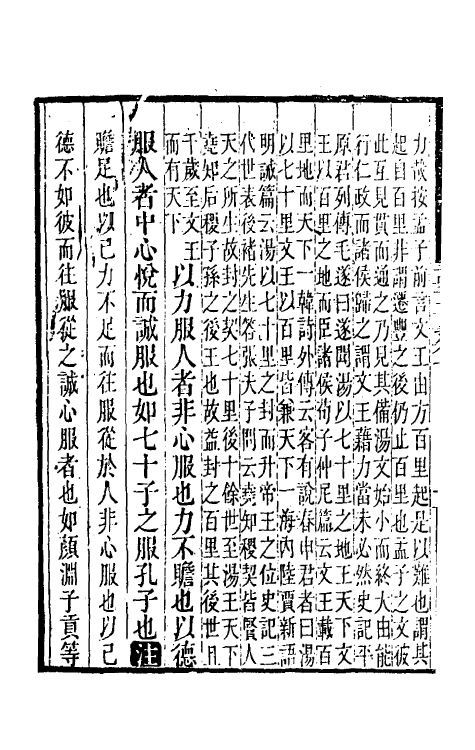 力哉按孟子前言文王由方百里起是以難也謂其
起自百里非謂遷豐之後仍止百里也孟子之文彼
此互見貫而通之乃見其備湯文始小而終大由能
行仁政而諸侯歸之謂文王藉力當未必然史記平
原君列傳毛遂曰遂聞湯以七十里之地王天下文
王以百里之地而臣諸侯荀子仲尼篇云文王載百
里地而天下一韓詩外傳云客有說春申君者曰湯
以七十里文王以百里皆兼天下一海內陸賈新語
明誠篇云湯以七十里之封而升帝王之位史記三
代世表後褚先生答張夫子問云堯知稷契皆賢人
天之所生故封之契七十里後十餘世至湯王天下
堯知后稷子孫之後王也故益封之百里其後世且
千歲至文王
而有天下
以力服人者非心服也力不贍也以德
服人者中心悅而誠服也如七十子之服孔子也注
贍足也以己力不足而往服從於人非心服也以己
德不如彼而往服從之誠心服者也如顏淵子貢等